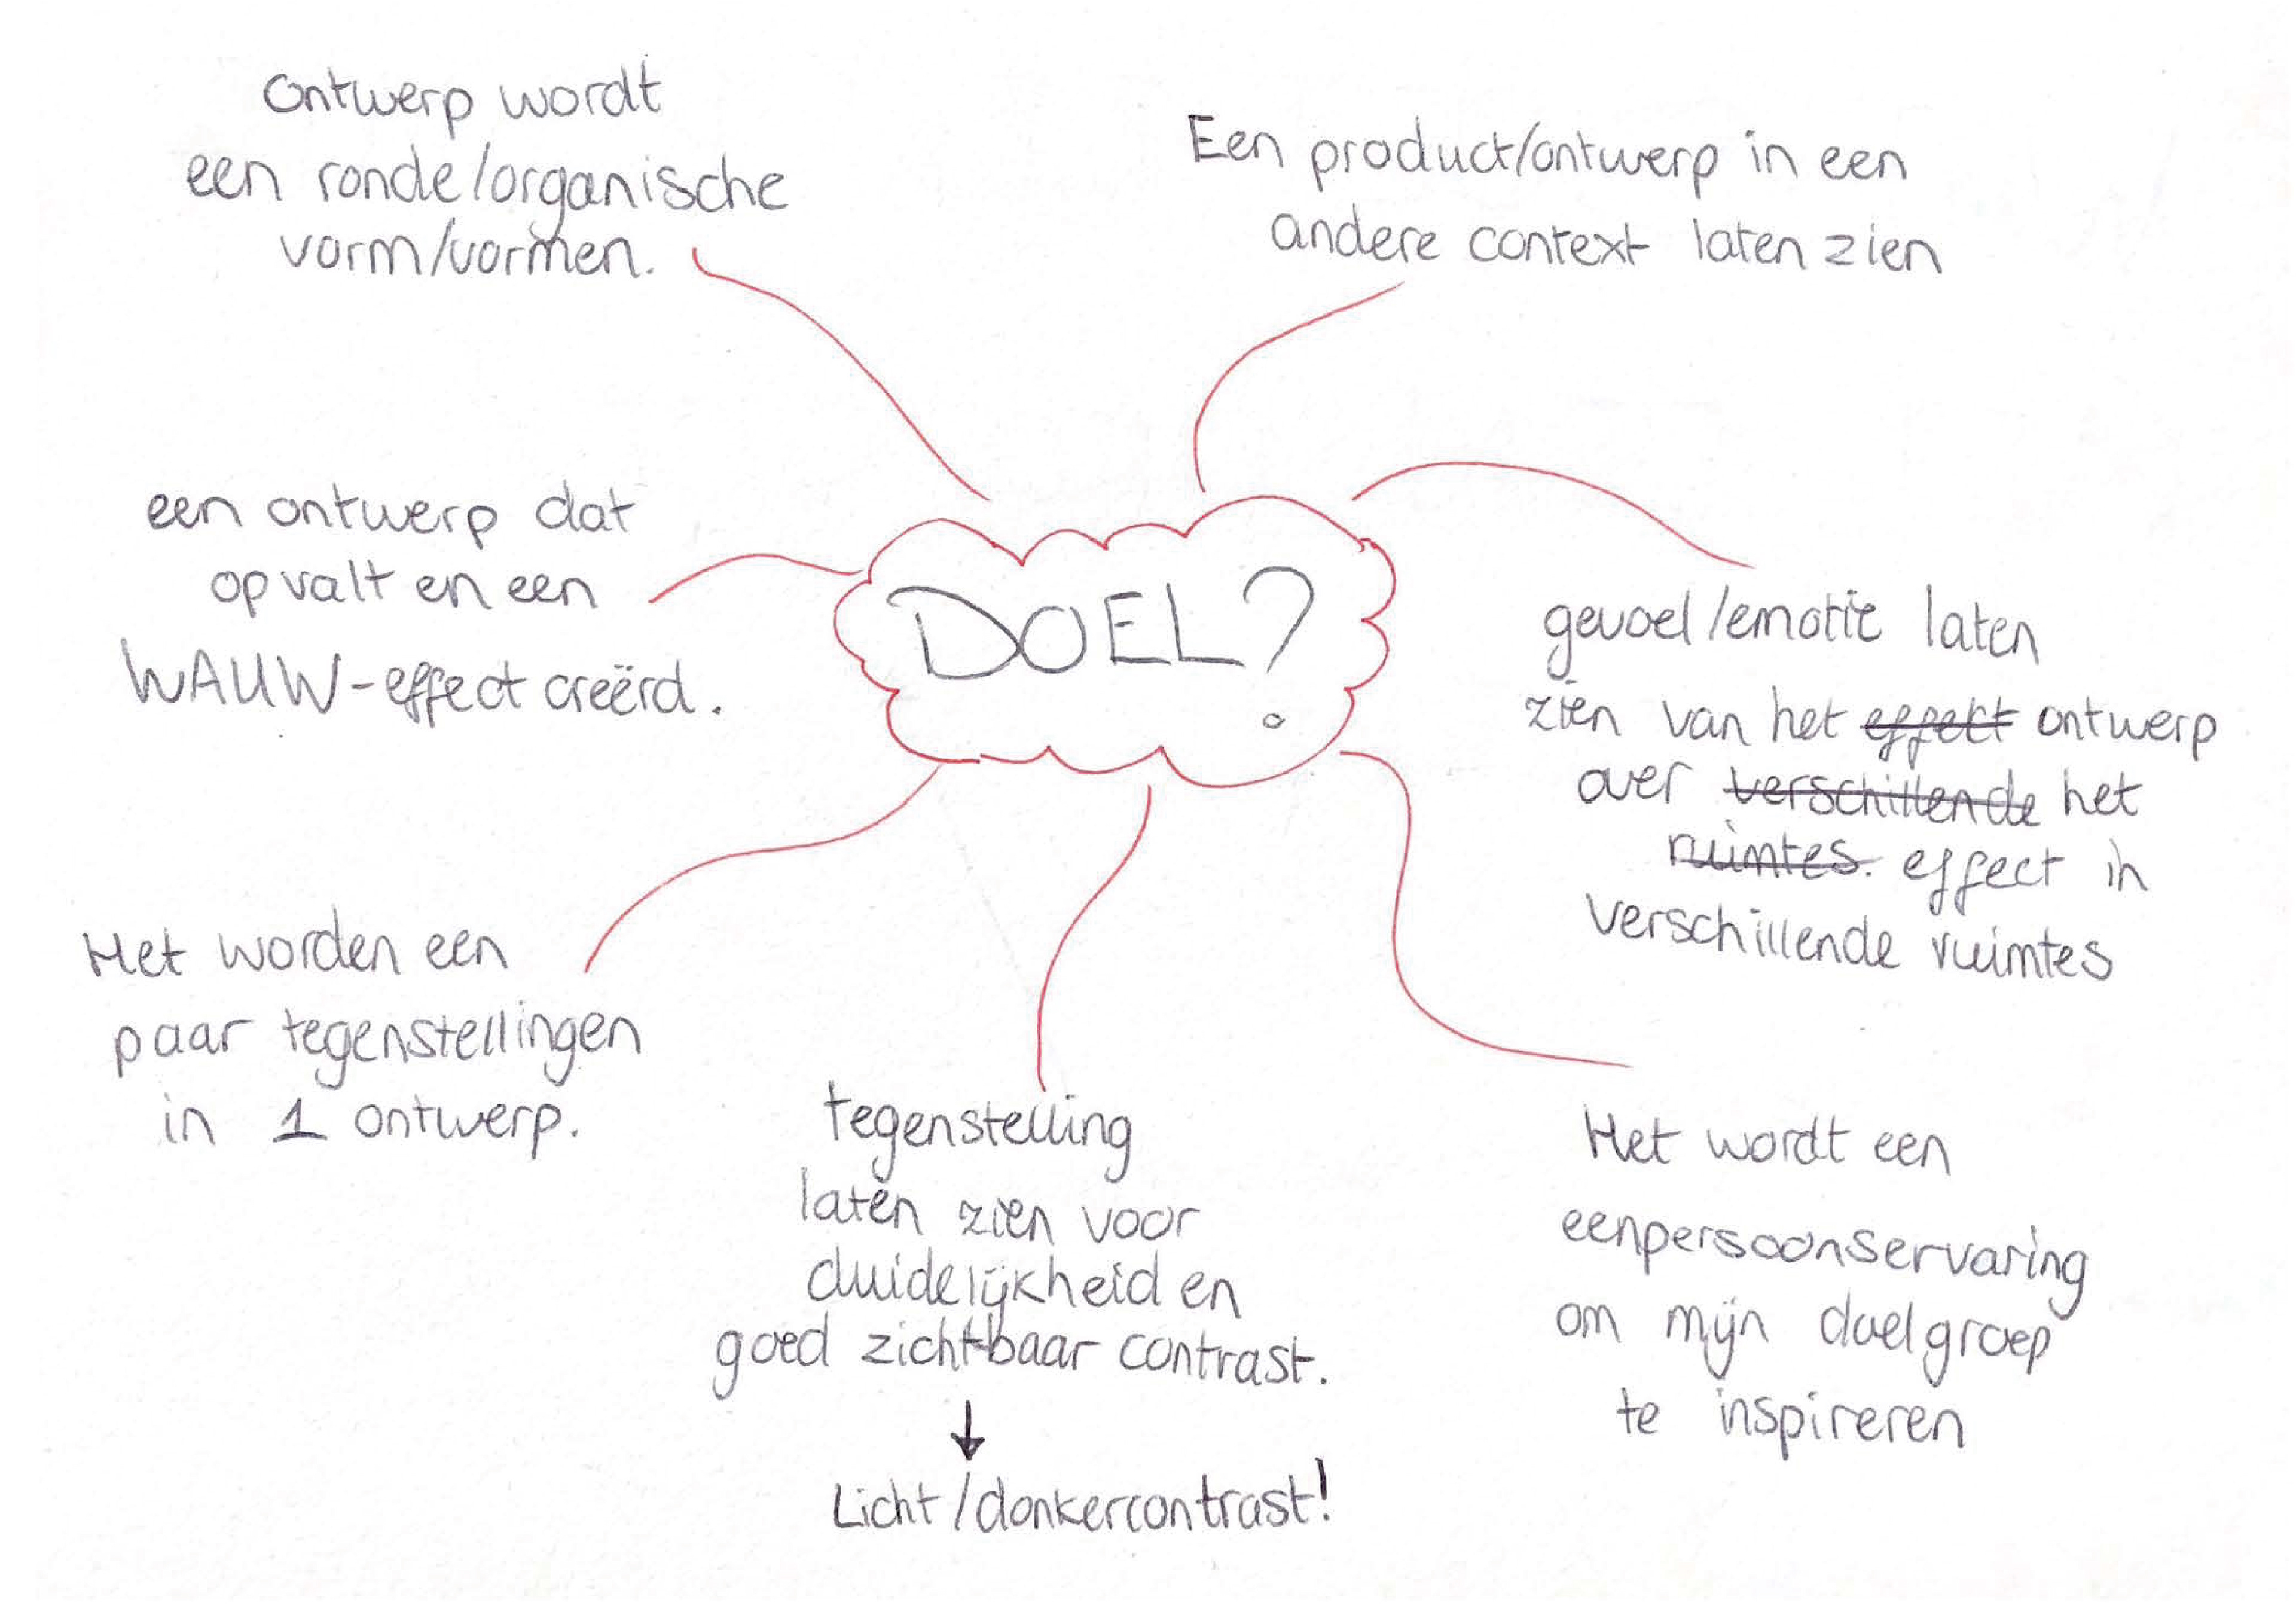 Ontwerp wordt
een ronde/organische
vorm/vormen.
Een product/ontwerp in een
andere context laten zien
een ontwerp dat
opvalt en een
WAUW-effect creërd.
DOEL?
gevoel/emotie laten
zien van het effekt ontwerp
over verschillende het
ruimtes. effect in
verschillende ruimtes
Het worden een
paar tegenstellingen
in 1 ontwerp.
tegenstelling
laten zien voor
duidelijkheid en
goed zichtbaar contrast.
↓
Licht/donkercontrast!
Het wordt een
eenpersoonservaring
om mijn doelgroep
te inspireren